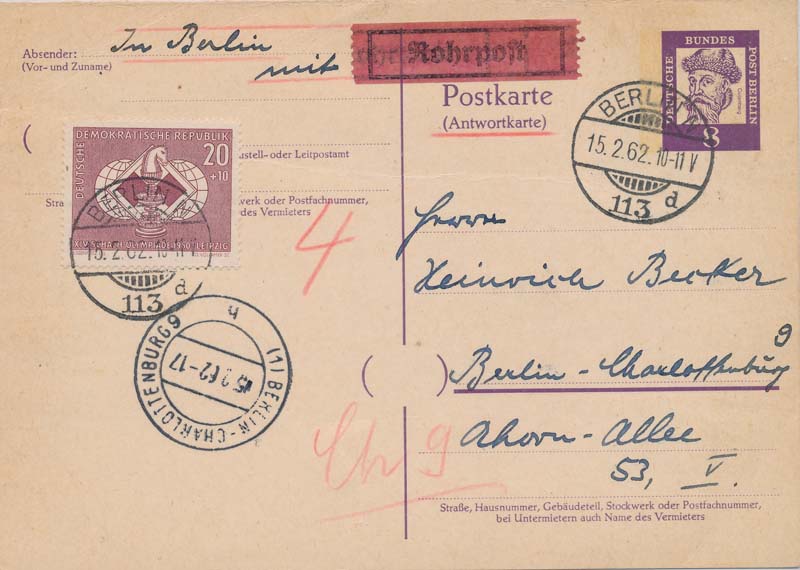 Absender:
(Vor- und Zuname)
In Berlin
mit
Rohrpost
Postkarte
(Antwortkarte)
DEUTSCHE BUNDES POST BERLIN
8
BERLIN
15.2.62.10-11V
113 d
(
DEUTSCHE DEMOKRATISCHE REPUBLIK
20
+10
XIV. SCHACH-OLYMPIADE 1960 LEIPZIG
BERLIN
15.2.62.10-11V
113 d
ustell- oder Leitpostamt
Stra
kwerk oder Postfachnummer,
des Vermieters
4
Herrn
Heinrich Becker
( )
Berlin-Charlottenburg 9
Ahorn-Allee
53, V.
(1) BERLIN-CHARLOTTENBURG 9
h
15.2.62-17
Ch 9
Straße, Hausnummer, Gebäudeteil, Stockwerk oder Postfachnummer,
bei Untermietern auch Name des Vermieters